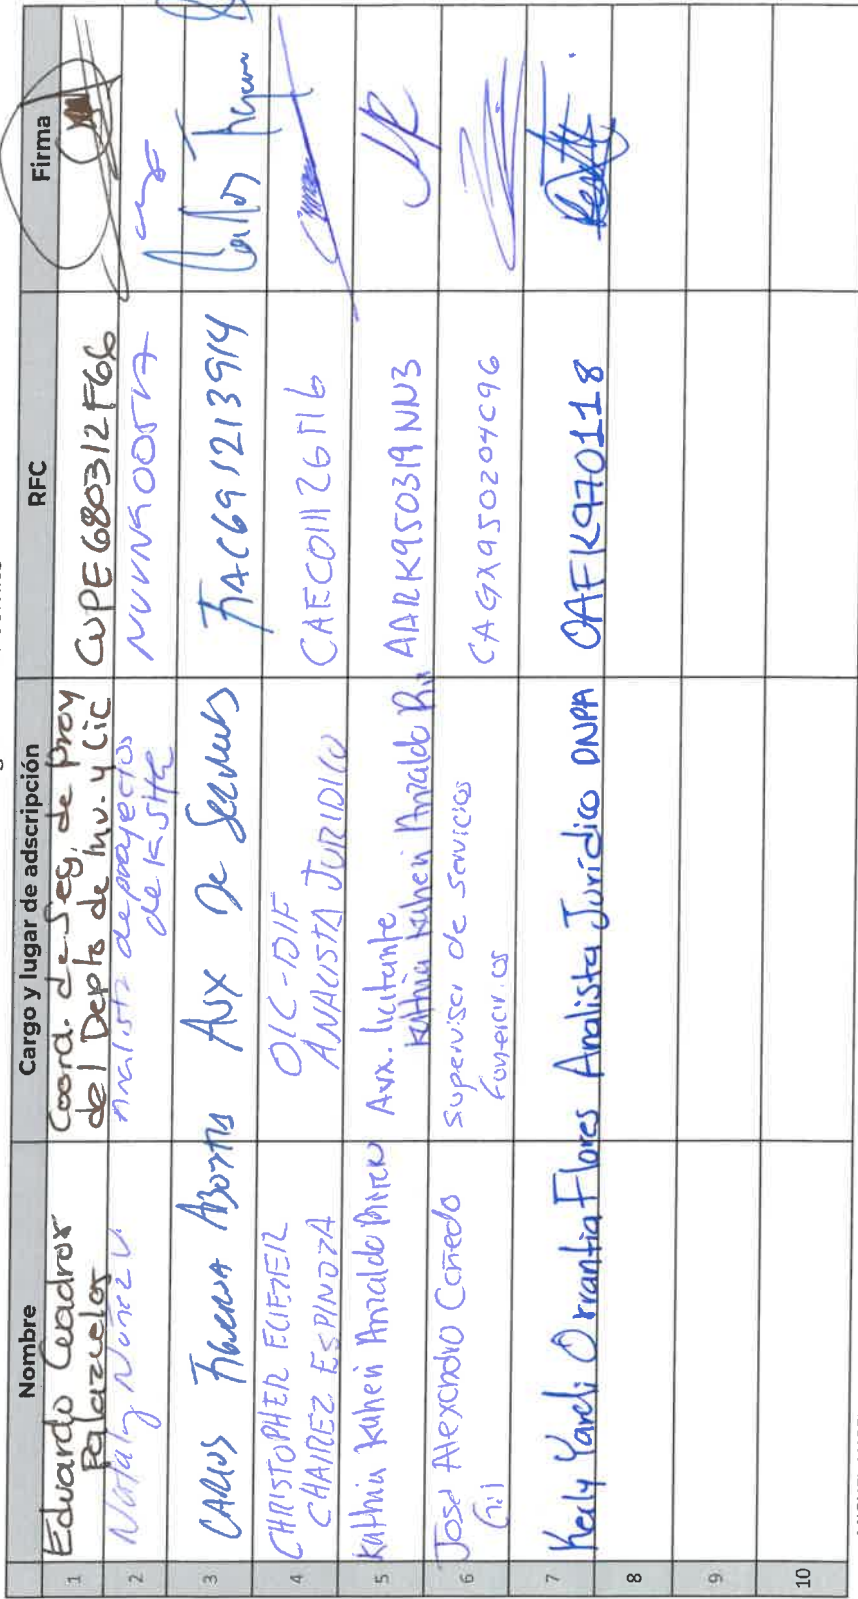 Nombre Cargo y lugar de adscripción RFC Firma
1 Eduardo Cuadros Palazuelos Coord. de Seg. de proy del Depto de Inv. y Lic CUPE680312F66
2 Nataly Núñez V Analista de proyectos de la
3 CARLOS FIGUEROA Aux De Servicios FIAC691213914
4 CHRISTOPHER ELIEZER CHAIREZ ESPINOZA OIC-DIF ANALISTA JURIDICO
5 Kathia Kaheri Anzaldo Aux. licitante Kathia Kaheri Anzaldo AARK950319NN3
6 José Alexandro Cañedo Gil Supervisor de servicios CAGX950204C96
7 Kerly Yareli Orrantia Flores Analista Jurídico DNPA OAFK970118
8
9
10